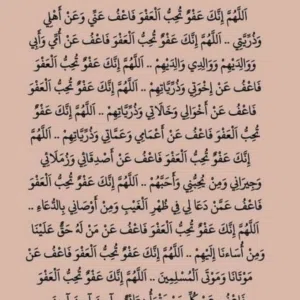 اَللَّهُمَّ إِنَّكَ عَفُوٌّ تُحِبُّ الْعَفْوَ فَاعْفُ عَنِّي وَعَنْ أَهْلِي
وَذُرِّيَّتِي .. اَللَّهُمَّ إِنَّكَ عَفُوٌّ تُحِبُّ الْعَفْوَ فَاعْفُ عَنْ أُمِّي وَأَبِي
وَوَالِدَيْهِمْ وَوَالِدِي وَالِدَيْهِمْ .. اَللَّهُمَّ إِنَّكَ عَفُوٌّ تُحِبُّ الْعَفْوَ
فَاعْفُ عَنْ إِخْوَتِي وَذُرِّيَّاتِهِمْ .. اَللَّهُمَّ إِنَّكَ عَفُوٌّ تُحِبُّ الْعَفْوَ
فَاعْفُ عَنْ أَخْوَالِي وَخَالَاتِي وَذُرِّيَّاتِهِمْ .. اَللَّهُمَّ إِنَّكَ عَفُوٌّ
تُحِبُّ الْعَفْوَ فَاعْفُ عَنْ أَعْمَامِي وَعَمَّاتِي وَذُرِّيَّاتِهِمْ .. اَللَّهُمَّ
إِنَّكَ عَفُوٌّ تُحِبُّ الْعَفْوَ فَاعْفُ عَنْ أَصْدِقَائِي وَزُمَلَائِي
وَجِيرَانِي وَمِنْ يُحِبُّنِي وَأُحِبُّهُمْ .. اَللَّهُمَّ إِنَّكَ عَفُوٌّ تُحِبُّ الْعَفْوَ
فَاعْفُ عَمَّنْ دَعَا لِي فِي ظَهْرِ الْغَيْبِ وَمِنْ أَوْصَانِي بِالدُّعَاءِ ..
اَللَّهُمَّ إِنَّكَ عَفُوٌّ تُحِبُّ الْعَفْوَ فَاعْفُ عَنْ مَنْ لَهُ حَقٌّ عَلَيْنَا
وَمِنْ أَسَأْنَا إِلَيْهِمْ .. اَللَّهُمَّ إِنَّكَ عَفُوٌّ تُحِبُّ الْعَفْوَ فَاعْفُ عَنْ
مَوْتَانَا وَمَوْتَى الْمُسْلِمِينَ .. اَللَّهُمَّ إِنَّكَ عَفُوٌّ تُحِبُّ الْعَفْوَ